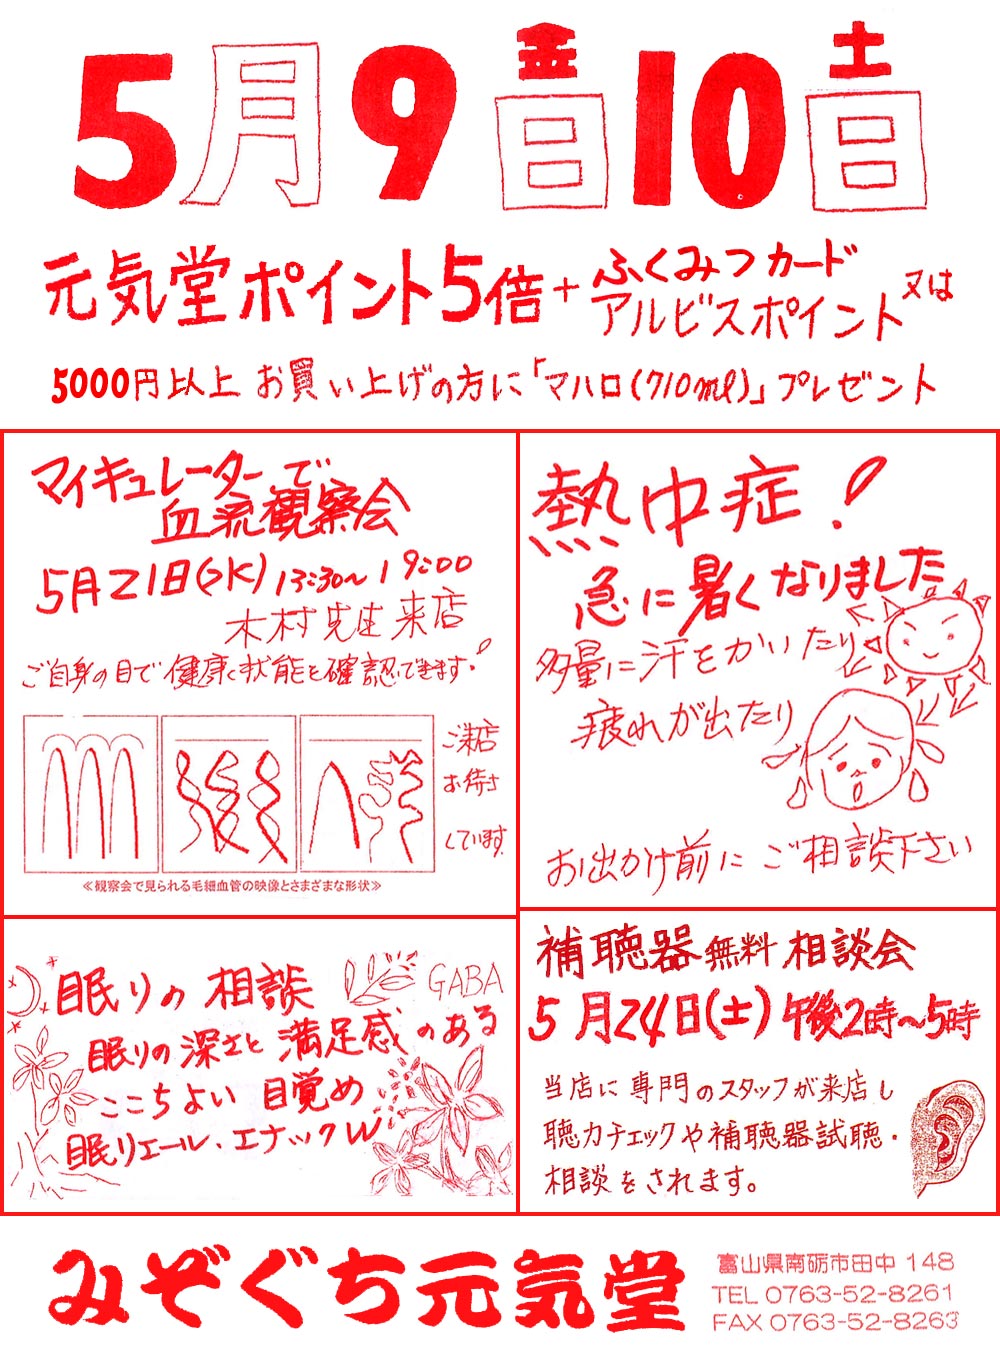 5月9金日10土日
元気堂ポイント5倍+ふくみつカード
アルビスポイント又は
5000円以上お買い上げの方に「マハロ(710ml)」プレゼント
マイキュレーターで
血流観察会
5月21日(水)13:30~19:00
木村先生来店
ご自身の目で健康状態を確認できます!
ご来店
お待ち
しています
≪観察会で見られる毛細血管の映像とさまざまな形状≫
熱中症!
急に暑くなりました
多量に汗をかいたり
疲れが出たり
お出かけ前にご相談下さい
眠りの相談
GABA
眠りの深さと満足感のある
ここちよい目覚め
眠リエール・エナックW
補聴器無料相談会
5月24日(土)午後2時~5時
当店に専門のスタッフが来店し
聴力チェックや補聴器試聴・
相談をされます。
みぞぐち元気堂
富山県南砺市田中148
TEL 0763-52-8261
FAX 0763-52-8263